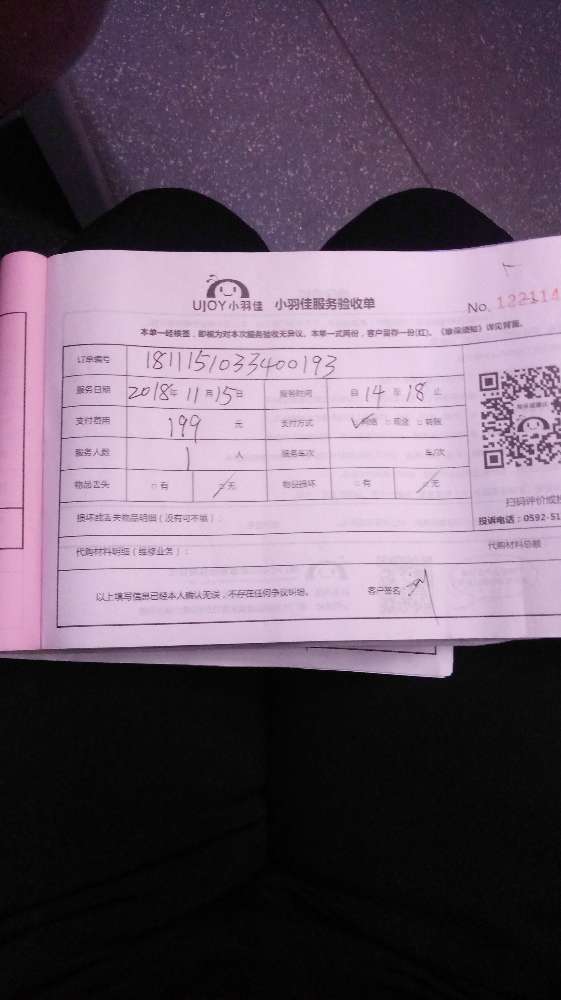 UJOY小羽佳 小羽佳服务验收单 No. 122114
本单一经核签，即视为对本次服务验收无异议。本单一式两份，客户留存一份(红)。《维保须知》详见背面。
订单编号 1811151033400193
服务日期 2018年11月15日 服务时间 自14至18止
支付费用 199 元 支付方式 ☑网络 □现金 □转账
服务人数 1 人 服务车次 车/次
物品丢失 □有 ☑无 物品损坏 □有 ☑无
扫码评价或投
损坏或丢失物品明细（没有可不填）：
投诉电话：0592-51
代购材料明细（维修业务）： 代购材料总额
以上填写信息已经本人确认无误，不存在任何争议纠纷。 客户签名：